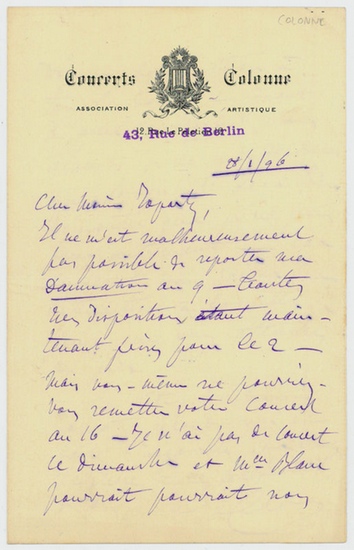 COLONNE
Concerts Colonne
ASSOCIATION ARTISTIQUE
43, Rue de Berlin
8/1/96
Cher Monsieur Ropartz,
Il ne m'est malheureusement
pas possible de reporter ma
Damnation au 9 — toutes
mes dispositions étant main-
tenant prises pour le 2 —
Mais vous-même ne pourriez-
vous remettre votre concert
au 16 — Je n'ai pas de concert
ce dimanche et Mme
pourrait pourrait nous